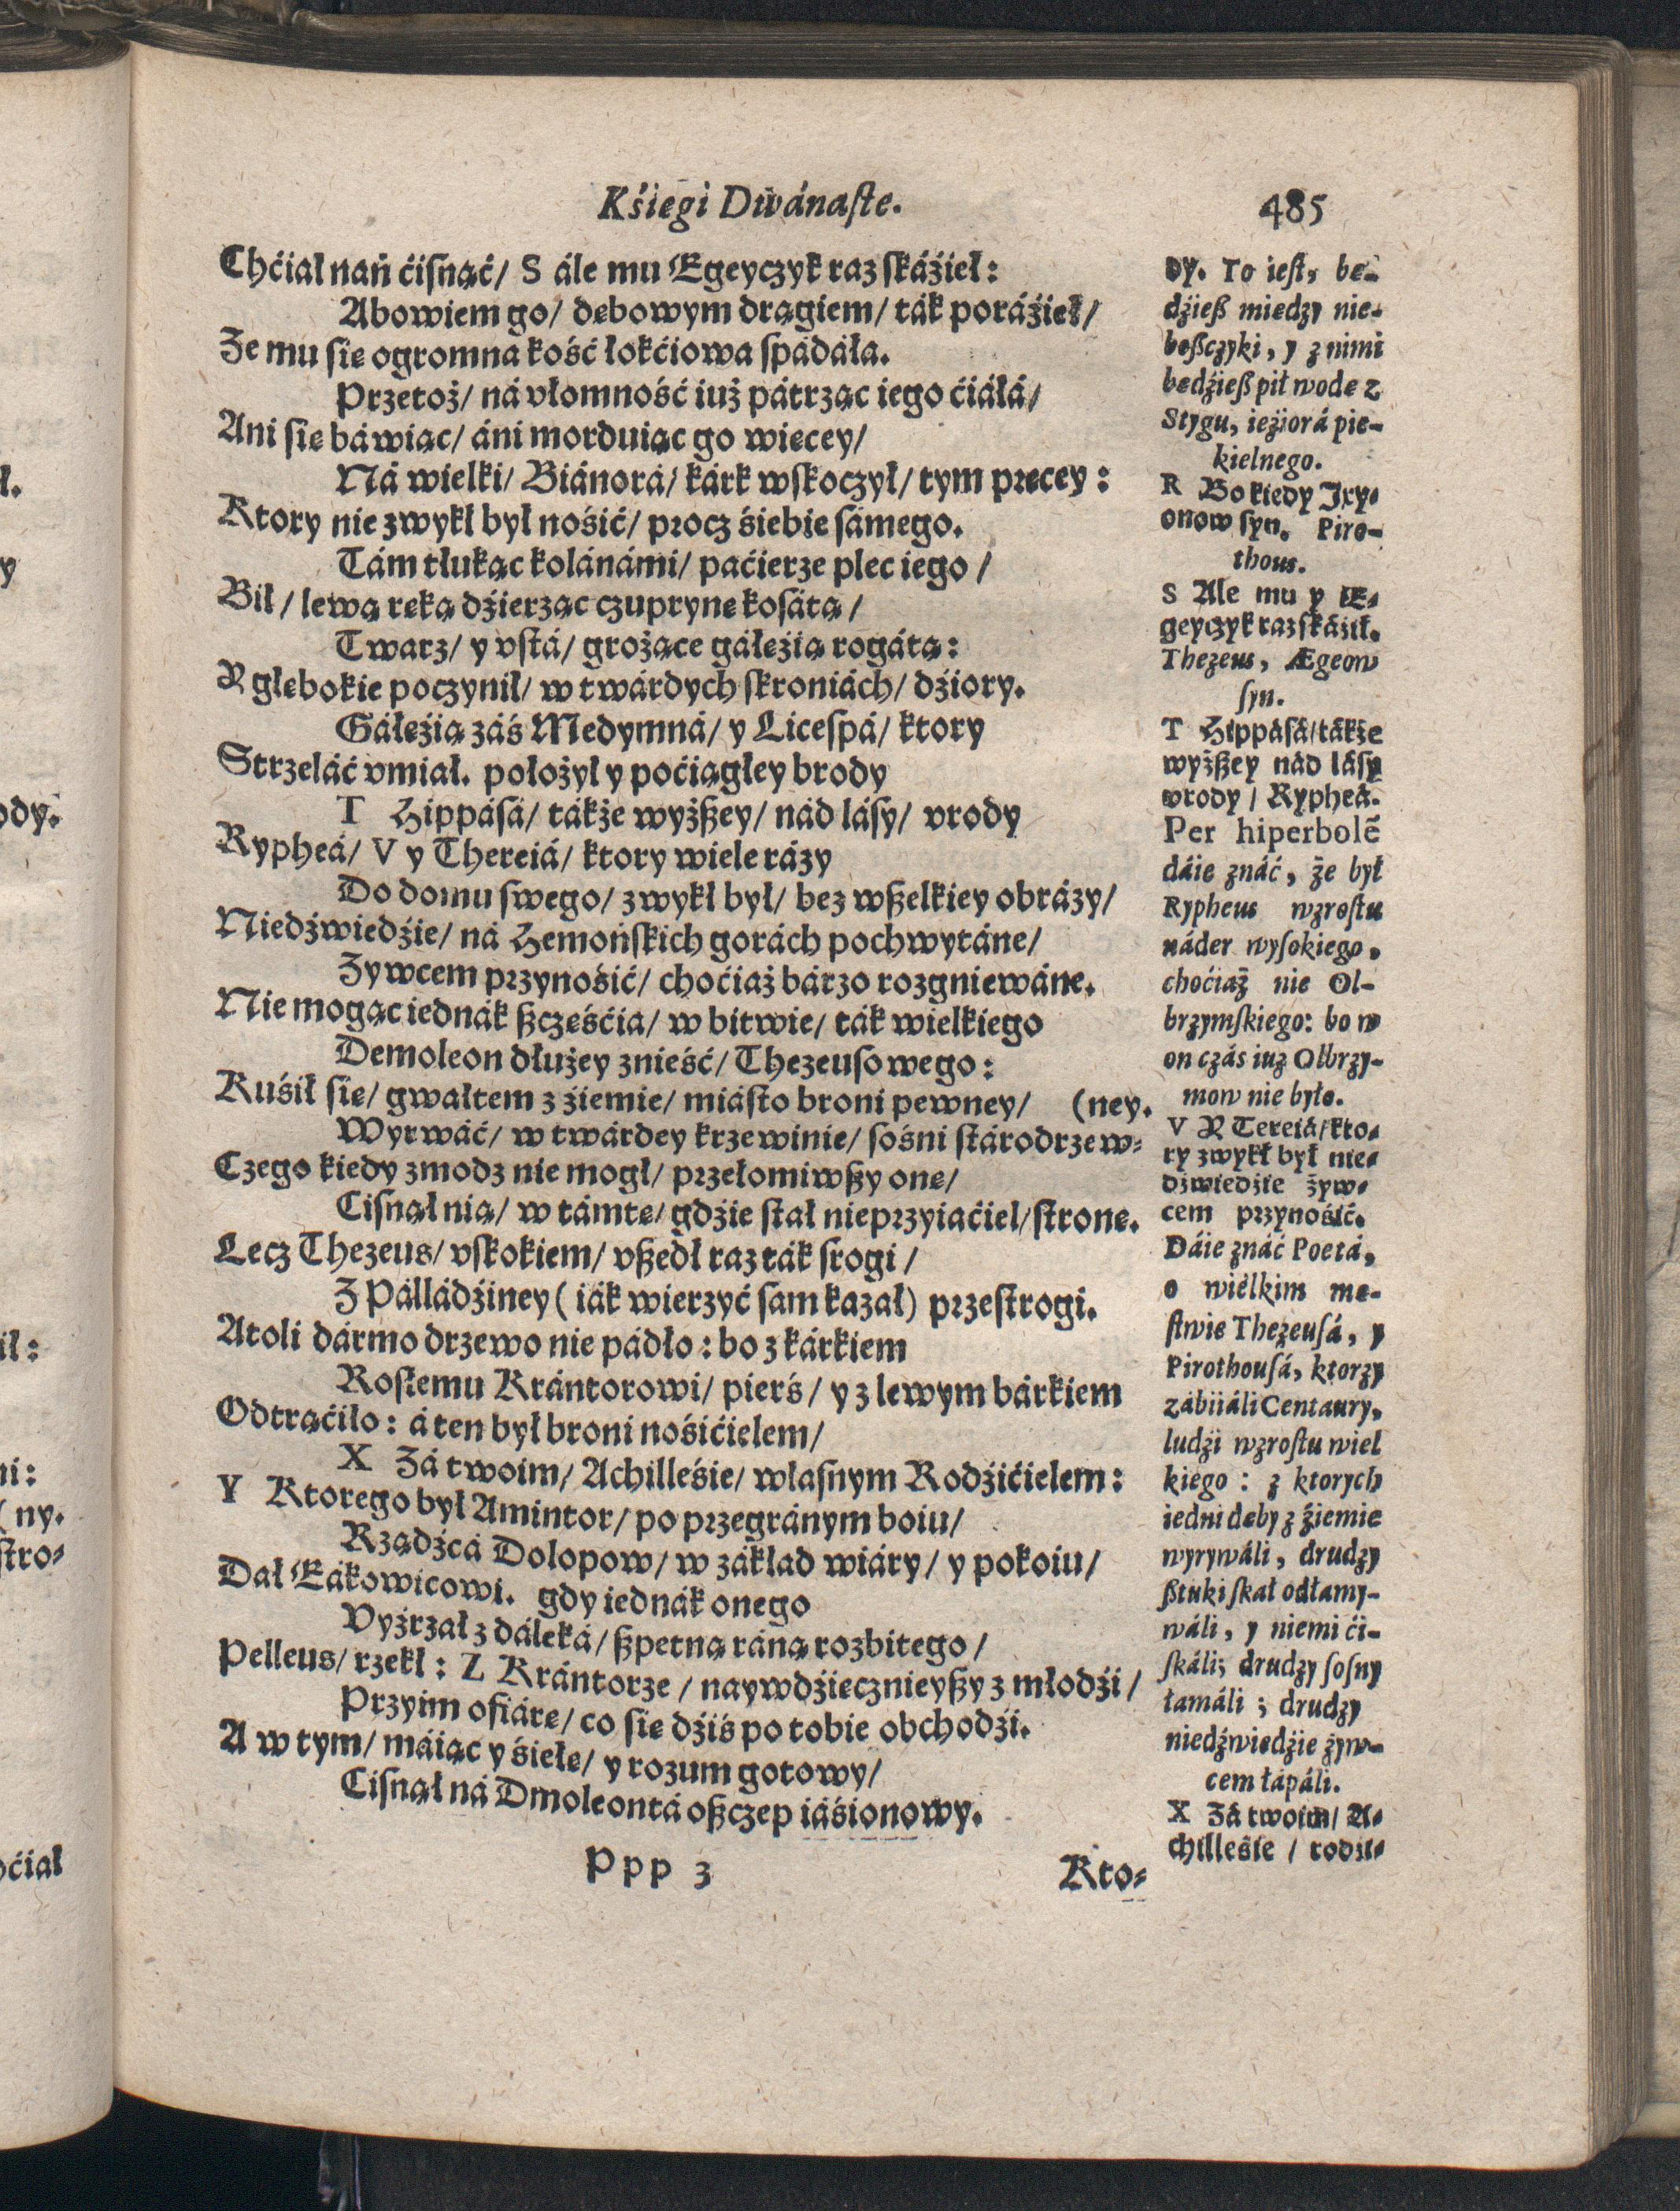 Kśięgi Dwánaſte.
485
Chćiał nań ćiſnąć/ S ále mu Egeyczyk raz ſkáźieł:
Abowiem go/ dębowym drągiem/ ták poráźieł/
Że mu ſię ogromna kość łokćiowa ſpádáłá.
Przetoż/ ná vłomność iuż pátrząc iego ćiáłá/
Ani ſię báwiąc/ áni morduiąc go więcey/
Ná wielki/ Biánorá/ kárk wſkoczył/ tym pręcey:
Ktory nie zwykł był nośić/ procz śiebie ſámego.
Tám tłukąc kolánámi/ paćierze plec iego/
Bił/ lewą ręką dźierząc czuprynę koſátą/
Twarz/ y vſtá/ grożące gáłęźią rogátą:
Y głębokie poczynił/ w twárdych ſkroniách/ dźiory.
Gáłęźią záś Medymná/ y Liceſpá/ ktory
Strzeláć vmiał. położył y poćiągłey brody
T Hippáſá/ tákże wyżßey/ nád láſy/ vrody
Rypheá/ V y Thereiá/ ktory wiele rázy
Do domu ſwego/ zwykł był/ bez wßelkiey obrázy/
Niedźwiedźie/ ná Hemońſkich gorách pochwytáne/
Zywcem przynośić/ choćiaż bárzo rozgniewáne.
Nie mogąc iednák ßczęśćia/ w bitwie/ ták wielkiego
Demoleon dłużey znieść/ Thezeuſowego:
Kuśił ſię/ gwałtem z źiemie/ miáſto broni pewney/ (ney.
Wyrwáć/ w twárdey krzewinie/ ſośni ſtárodrzew-
Czego kiedy zmodz nie mogł/ przełomiwßy onę/
Ciſnął nią/ w támtę/ gdźie ſtał nieprzyiaćiel/ ſtronę.
Lecz Thezeus/ vſkokiem/ vßedł raz ták ſrogi/
Z Pálládźiney (iák wierzyć ſam kazał) przeſtrogi.
Atoli dármo drzewo nie pádło: bo z kárkiem
Roſłemu Krántorowi/ pierś/ y z lewym bárkiem
Odtrąćiło: á ten był broni nośićielem/
X Zá twoim/ Achilleśie/ własnym Rodźićielem:
Y Ktorego był Amintor/ po przegránym boiu/
Rządźcá Dolopow/ w zakład wiáry/ y pokoiu/
Dał Eákowicowi. gdy iednák onego
Vyźrzał z dáleká/ ßpetną ráną rozbitego/
Pelleus/ rzekł: Z Krántorze/ naywdźięcznieyßy z młodźi/
Przyim ofiárę/ co ſię dźiś po tobie obchodźi.
A w tym/ máiąc y śiełę/ y rozum gotowy/
Ciſnął ná Dmoleontá oßczep iáśionowy.
Ppp 3
Kto-
dy. To ieſt, bę-
dźieß miedzy nie-
boßczyki, y z nimi
będźieß pił wodę z
Stygu, ieźiorá pie-
kielnego.
R Bo kiedy Ixy-
onow ſyn. Piro-
thous.
S Ale mu y Æ-
geyczyk raz ſkáźił.
Thezeus, Ægeow
ſyn.
T Hippáſá/ tákże
wyżßey nád láſy
vrody/ Rypheá.
Per hiperbolẽ
dáie znáć, że był
Rypheus wzroſtu
náder wyſokiego,
choćiaż nie Ol-
brzymſkiego: bo w
on czás iuż Olbrzy-
mow nie było.
V Y Tereiá/ kto-
ry zwykł był nie-
dźwiedźie żyw-
cem przynośić.
Dáie znáć Poetá,
o wielkim mę-
ſtwie Thezeuſá, y
Pirothouſá, ktorzy
zábiiáli Centaury,
ludźi wzroſtu wiel
kiego: z ktorych
iedni dęby z źiemie
wyrywáli, drudzy
ßtuki ſkał odłamy-
wáli, y niemi ći-
ſkáli; drudzy ſoſny
łamáli; drudzy
niedźwiedźie żyw-
cem łápáli.
X Zá twoim/ A-
chilleśie/ rodźi-